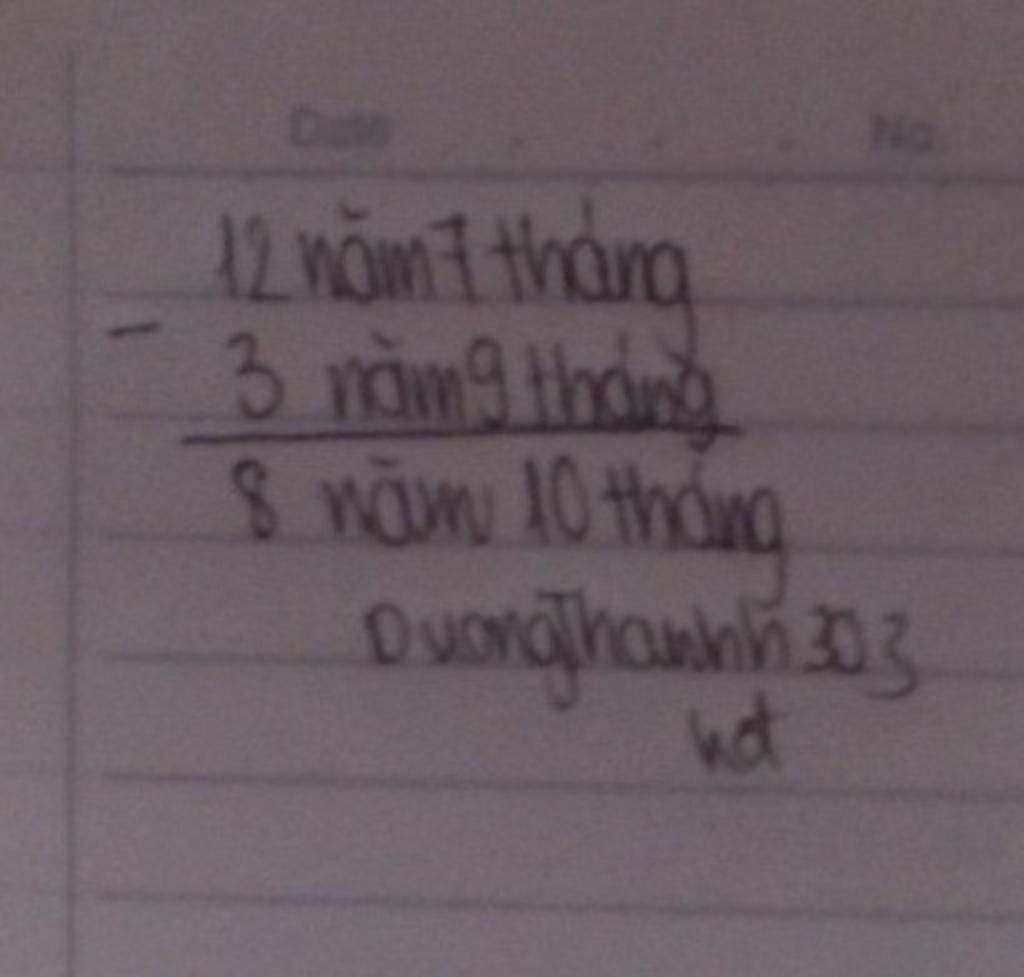 Date No.
12 năm 7 tháng
-
3 năm 9 tháng
8 năm 10 tháng
DuongThanhh 303
hdt